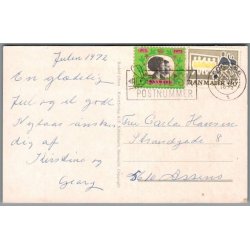 Julen 1972
En glædelig
Jul og et godt
Nytaar ønskes
dig af
Kirstine og
Georg
POSTNUMMER
DANMARK
Fru Carla Hansen
Strandgade 8
5610 Assens